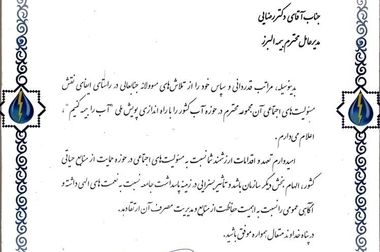 جناب آقای دکتر رضایی
مدیرعامل محترم بیمه البرز
بدینوسیله، مراتب قدردانی و سپاس خود را از تلاش‌های مسوولانه جنابعالی در راستای ایفای نقش
مسئولیت‌های اجتماعی آن مجموعه محترم در حوزه آب کشور را با راه اندازی پویش ملی "آب را بیمه کنیم"،
اعلام می‌دارم.
امیدوارم تعهد و اقدامات ارزشمند شما نسبت به مسئولیت‌های اجتماعی در حوزه حمایت از منابع حیاتی
کشور، الهام بخش دیگر سازمان‌ها باشد و تأثیر بسزایی در زمینه پاسداشت جامعه نسبت به نعمت‌های الهی داشته و
آگاهی عمومی را نسبت به اهمیت حفاظت از منابع و مدیریت مصرف آن ارتقاء دهد.
در پناه خداوند متعال همواره موفق باشید.